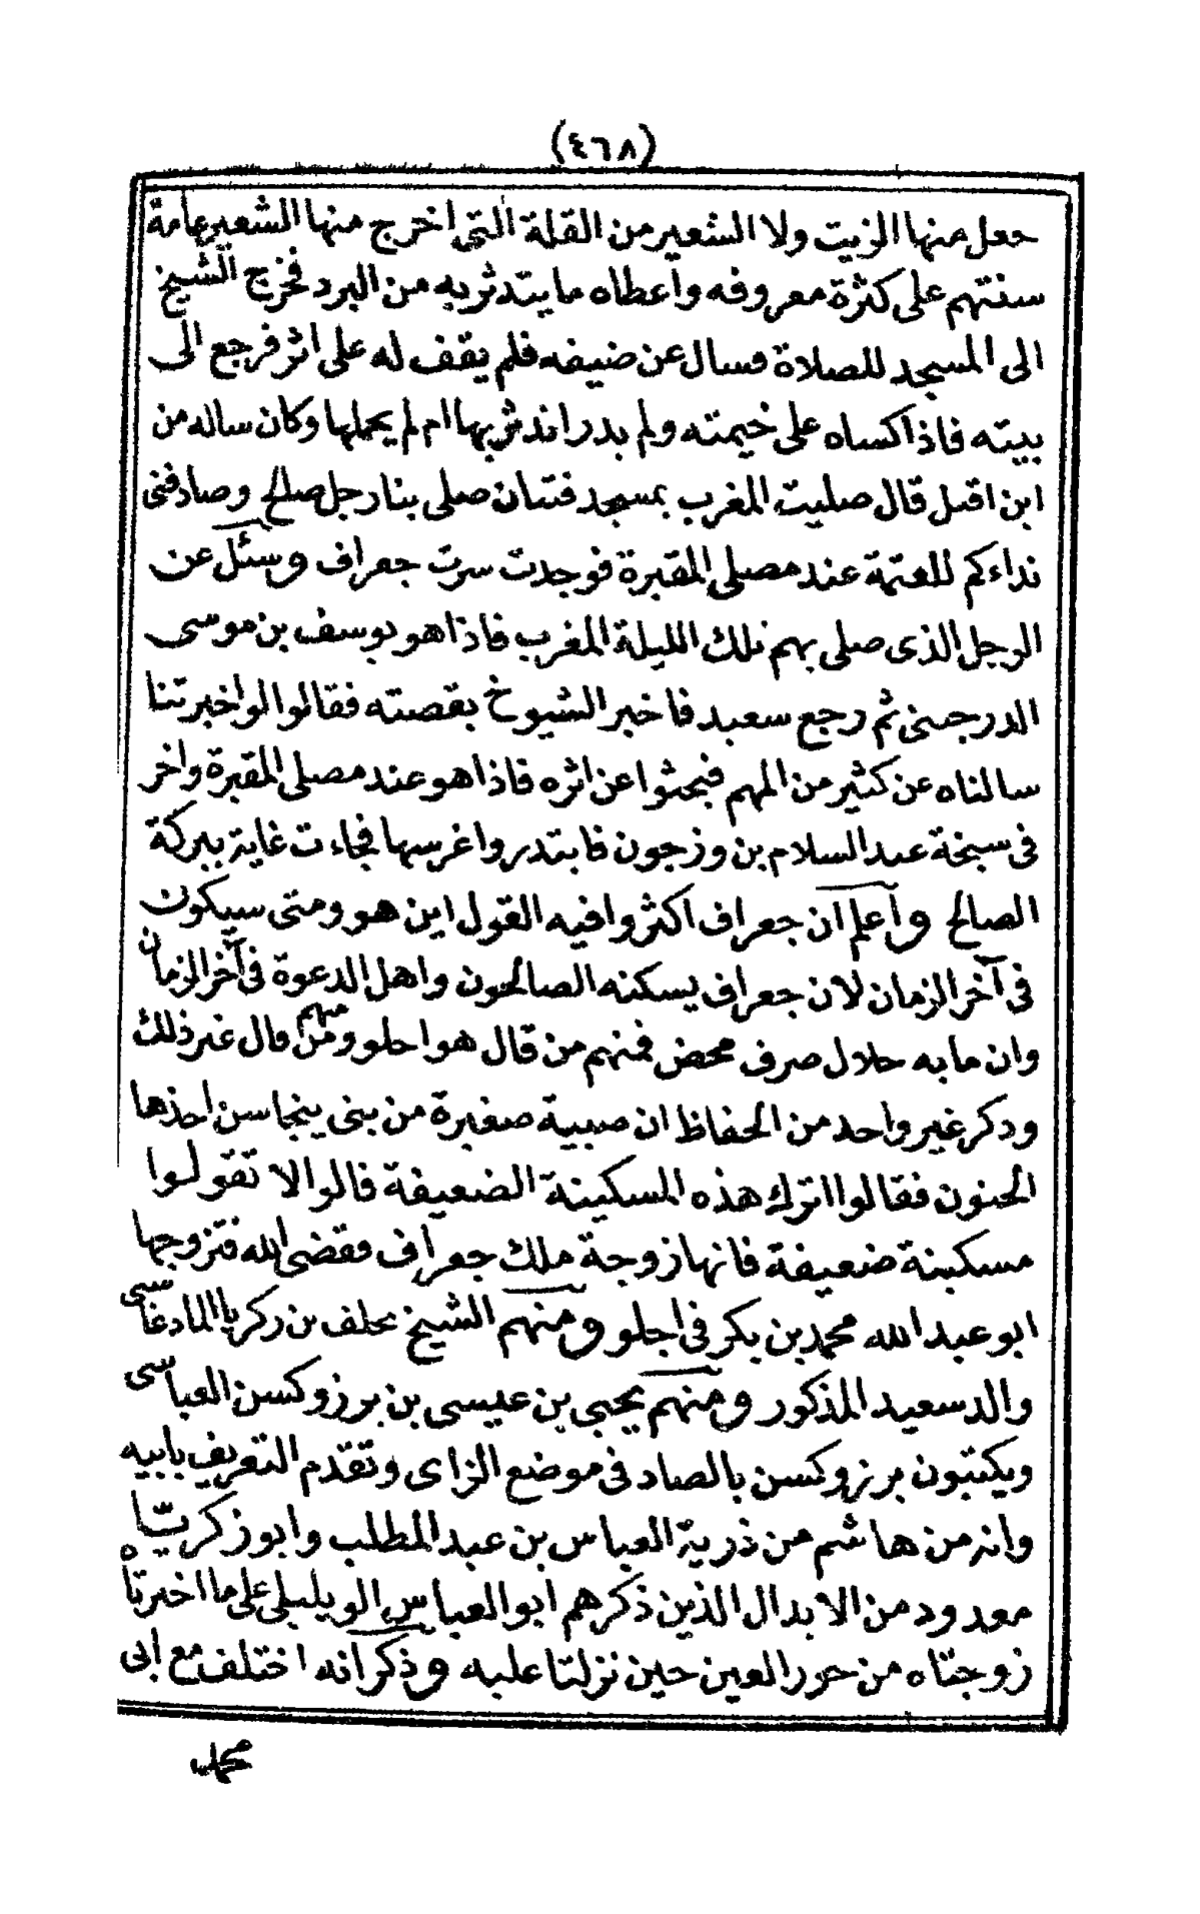 (٤٦٨)
جعل منها الزيت ولا الشعير من القلة التى اخرج منها الشعير عامة
سنتهم على كثرة معروفه واعطاه ما يتدثر به من البرد فخرج الشيخ
الى المسجد للصلاة وسال عن ضيفه فلم يقف له على اثر فرجع الى
بيته فاذا كساه على خيمته ولم يدر اندثر بها ام لم يحملها وكان ساله من
اين اقبل قال صليت المغرب بمسجد فتسان صلى بنا رجل صالح وصادفنى
نداءكم للعتمة عند مصلى المقبرة فوجدت سرت جعراف وسئل عن
الرجل الذى صلى بهم تلك الليلة المغرب فاذا هو يوسف بن موسى
الدرجينى ثم رجع سعيد فاخبر الشيوخ بقصته فقالوا لو اخبرتنا
سالناه عن كثير من المهم فبحثوا عن اثره فاذا هو عند مصلى المقبرة واخر
فى سبخة عبد السلام بن وزجون فابتدروا غرسها فجاءت غاية ببركة
الصالح واعلم ان جعراف اكثروا فيه القول اين هو ومتى سيكون
فى آخر الزمان لان جعراف يسكنه الصالحون واهل الدعوة فى آخر الزمان
وان ما به حلال صرف محض فمنهم من قال هو احلو ومنهم من قال غير ذلك
وذكر غير واحد من الحفاظ ان صبية صغيرة من بنى ينجاسن اخذها
الجنون فقالوا اترك هذه المسكينة الضعيفة قالوا لا تقولوا
مسكينة ضعيفة فانها زوجة ملك جعراف فقضى الله فتزوجها
ابو عبد الله محمد بن بكر فى اجلو ومنهم الشيخ يخلف بن زكريا المادغاسى
والد سعيد المذكور ومنهم يحيى بن عيسى بن برزوكسن العباسى
ويكتبون برزوكسن بالصاد فى موضع الزاى وتقدم التعريف بابيه
وانه من هاشم من ذرية العباس بن عبد المطلب وابو زكريّا
معدود من الابدال الذين ذكرهم ابو العباس الويليلى على ما اخبرتاه
زوجتاه من حور العين حين نزلتا عليه وذكر انه اختلف مع ابى
محمد